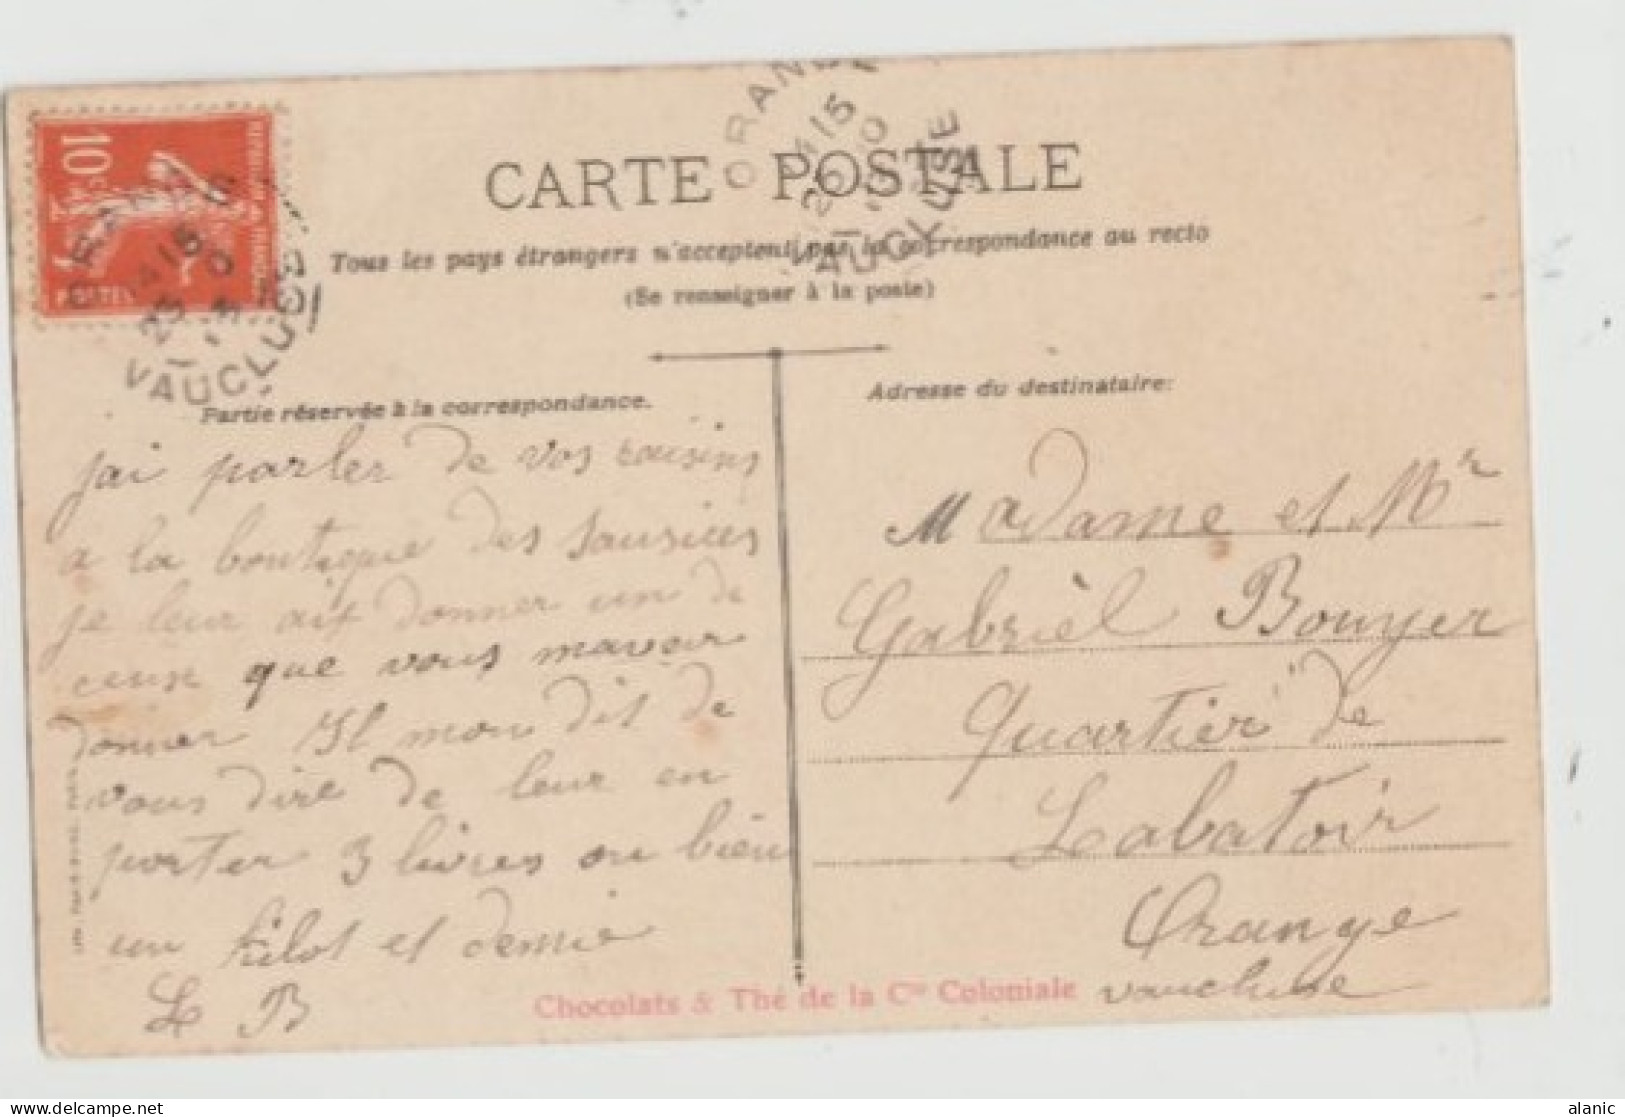 10c
POSTES
ORANGE
14 15
VAUCLUSE
ORANGE
14 15
VAUCLUSE
CARTE POSTALE
Tous les pays étrangers n'acceptent pas la correspondance au recto
(Se renseigner à la poste)
Partie réservée à la correspondance.
Adresse du destinataire:
jai parler de vos raisins
a la boutique des Sausices
je leur ait donner un de
ceux que vous mavoir
donner Il mon dit de
vous dire de leur en
porter 3 livres ou bien
un kilot et demie
L B
Madame et Mr
Gabrièl Bouyer
Quartier de
Labatoir
Orange
vaucluse
Chocolats & Thé de la Cie Coloniale
alanic